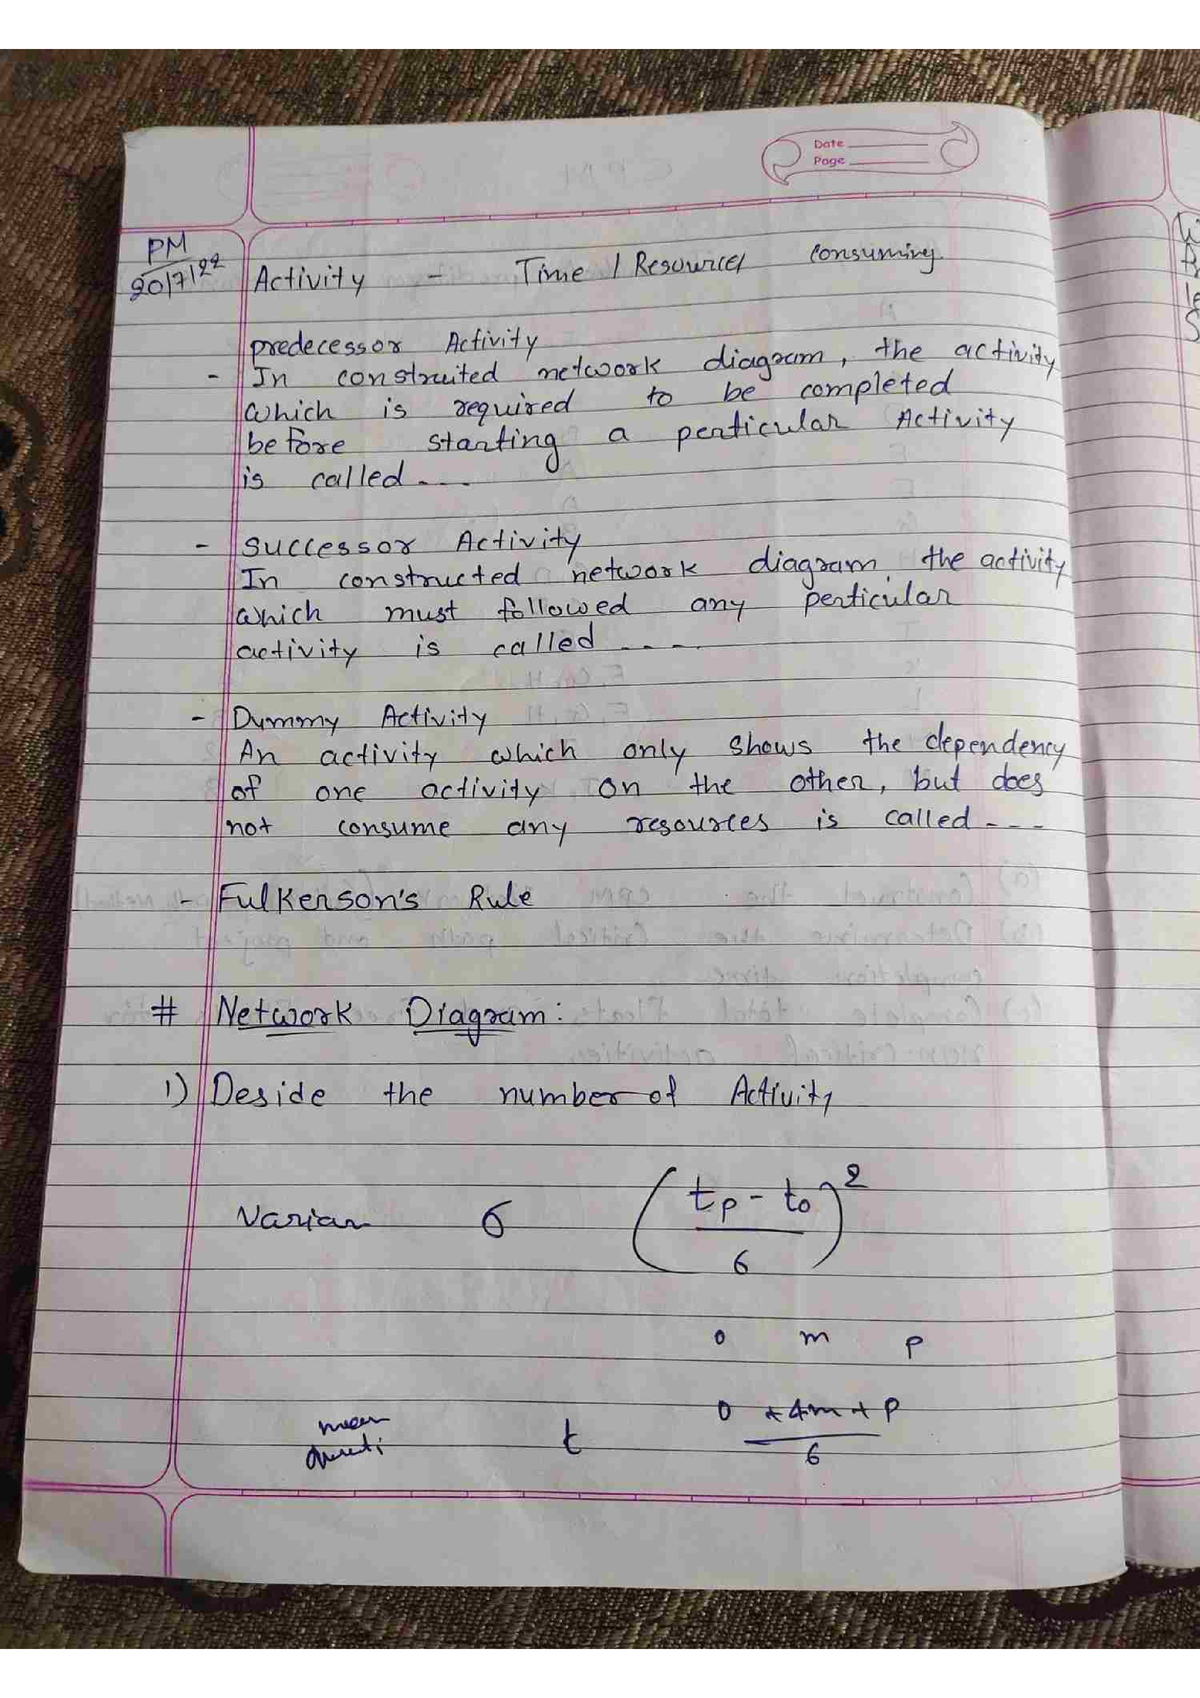 Date
Page
PM
20/7/22
Activity - Time / Resources consuming
predecessor Activity
- In construited network diagram, the activity
which is required to be completed
before starting a perticular Activity
is called ...
- Successor Activity
In constructed network diagram, the activity
which must followed any perticular
activity is called ....
- Dummy Activity
An activity which only shows the dependency
of one activity on the other, but does
not consume any resources is called ---
- Fulkerson's Rule
# Network Diagram:
1) Deside the number of Activity
Varian σ (tp - to / 6)²
o m p
mean t o + 4m + p / 6